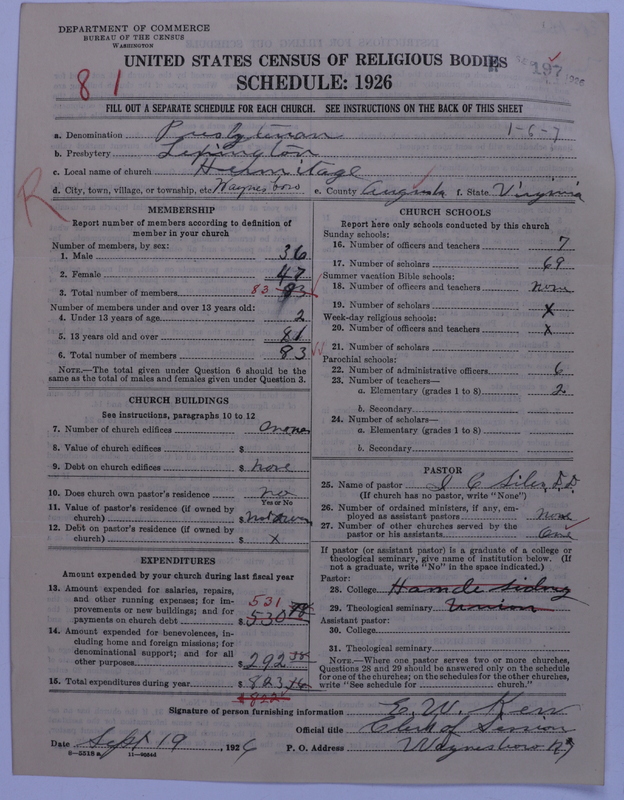 DEPARTMENT OF COMMERCE
BUREAU OF THE CENSUS
WASHINGTON
UNITED STATES CENSUS OF RELIGIOUS BODIES
197
SCHEDULE: 1926
81
FILL OUT A SEPARATE SCHEDULE FOR EACH CHURCH. SEE INSTRUCTIONS ON THE BACK OF THIS SHEET
1-6-7
a. Denomination Presbyterian
b. Presbytery Lexington
c. Local name of church Hermitage
d. City, town, village, or township, etc. Waynesboro e. County Augusta f. State Virginia
R
MEMBERSHIP
Report number of members according to definition of
member in your church
Number of members, by sex:
1. Male 36
2. Female 47
3. Total number of members 83 83
Number of members under and over 13 years old:
4. Under 13 years of age 2
5. 13 years old and over 81
6. Total number of members 83
NOTE.—The total given under Question 6 should be
same as the total of males and females given under Question 3.
CHURCH BUILDINGS
See instructions, paragraphs 10 to 12
7. Number of church edifices
8. Value of church edifices $
9. Debt on church edifices $ None
10. Does church own pastor's residence no
Yes or No
11. Value of pastor's residence (if owned by
church) $
12. Debt on pastor's residence (if owned by
church) $ x
EXPENDITURES
Amount expended by your church during last fiscal year
13. Amount expended for salaries, repairs,
and other running expenses; for im-
provements or new buildings; and for
payments on church debt $ 531 530
14. Amount expended for benevolences, in-
cluding home and foreign missions; for
denominational support; and for all
other purposes $ 292
15. Total expenditures during year $ 823
822
CHURCH SCHOOLS
Report here only schools conducted by this church
Sunday schools:
16. Number of officers and teachers 7
17. Number of scholars 69
Summer vacation Bible schools:
18. Number of officers and teachers none
19. Number of scholars x
Week-day religious schools:
20. Number of officers and teachers x
21. Number of scholars
Parochial schools:
22. Number of administrative officers 6
23. Number of teachers—
a. Elementary (grades 1 to 8) 2
b. Secondary
24. Number of scholars—
a. Elementary (grades 1 to 8)
b. Secondary
PASTOR
25. Name of pastor J C Siler, D.D.
(If church has no pastor, write "None")
26. Number of ordained ministers, if any, em-
ployed as assistant pastors None
27. Number of other churches served by the
pastor or his assistants One
If pastor (or assistant pastor) is a graduate of a college or
theological seminary, give name of institution below. (If
not a graduate, write "No" in the space indicated.)
Pastor:
28. College Hamden Sidney
29. Theological seminary Union
Assistant pastor:
30. College
31. Theological seminary
NOTE.—Where one pastor serves two or more churches,
Questions 28 and 29 should be answered only on the schedule
for one of the churches; on the schedules for the other churches,
write "See schedule for church."
Signature of person furnishing information E. W. Kerr
Official title Clerk of Session
Date Sept 19, 1926 P. O. Address Waynesboro
8—5518a 11—9034d